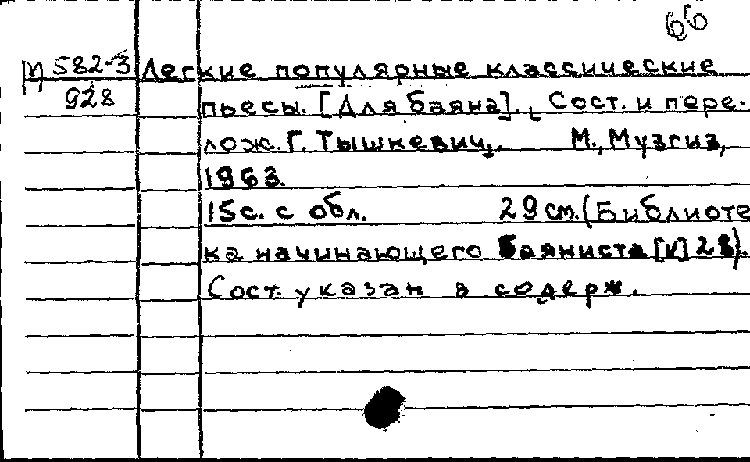 66
М 582-3 Легкие популярные классические
928 пьесы. [Для баяна]. Сост. и пере-
лож. Г. Тышкевич. М., Музгиз,
1963.
15с. с обл. 29 см. (Библиоте
ка начинающего баяниста [V] 28).
Сост. указан в содерж.